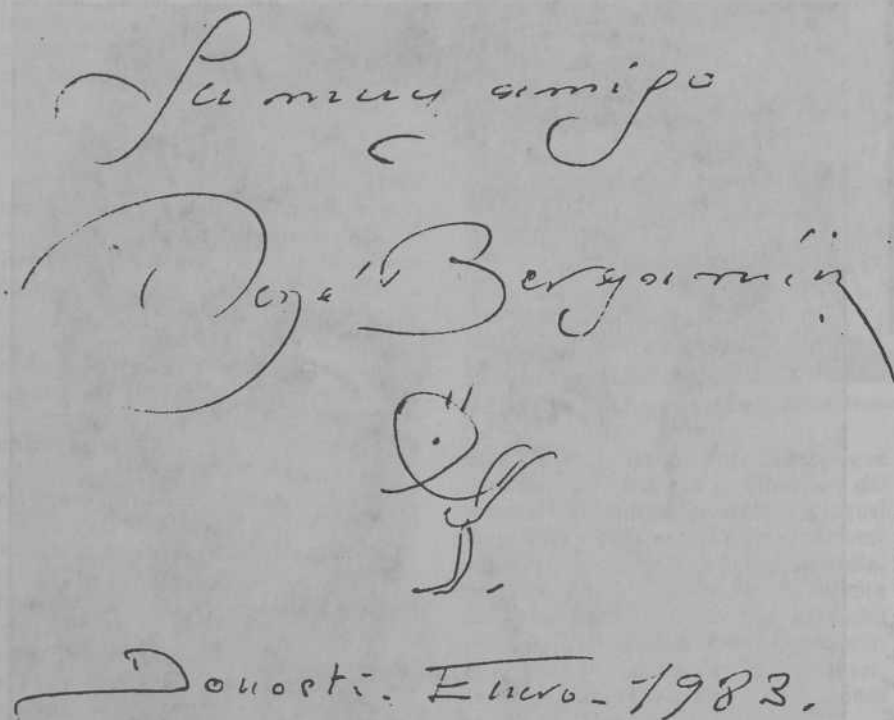 Su muy amigo
José Bergamín
Donosti. Enero - 1983.